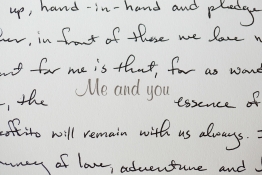 up, hand-in-hand and pledge
in front of those we love
for me is that, for as
Me and you
, the essence of
will remain with us always.
of love, adventure and